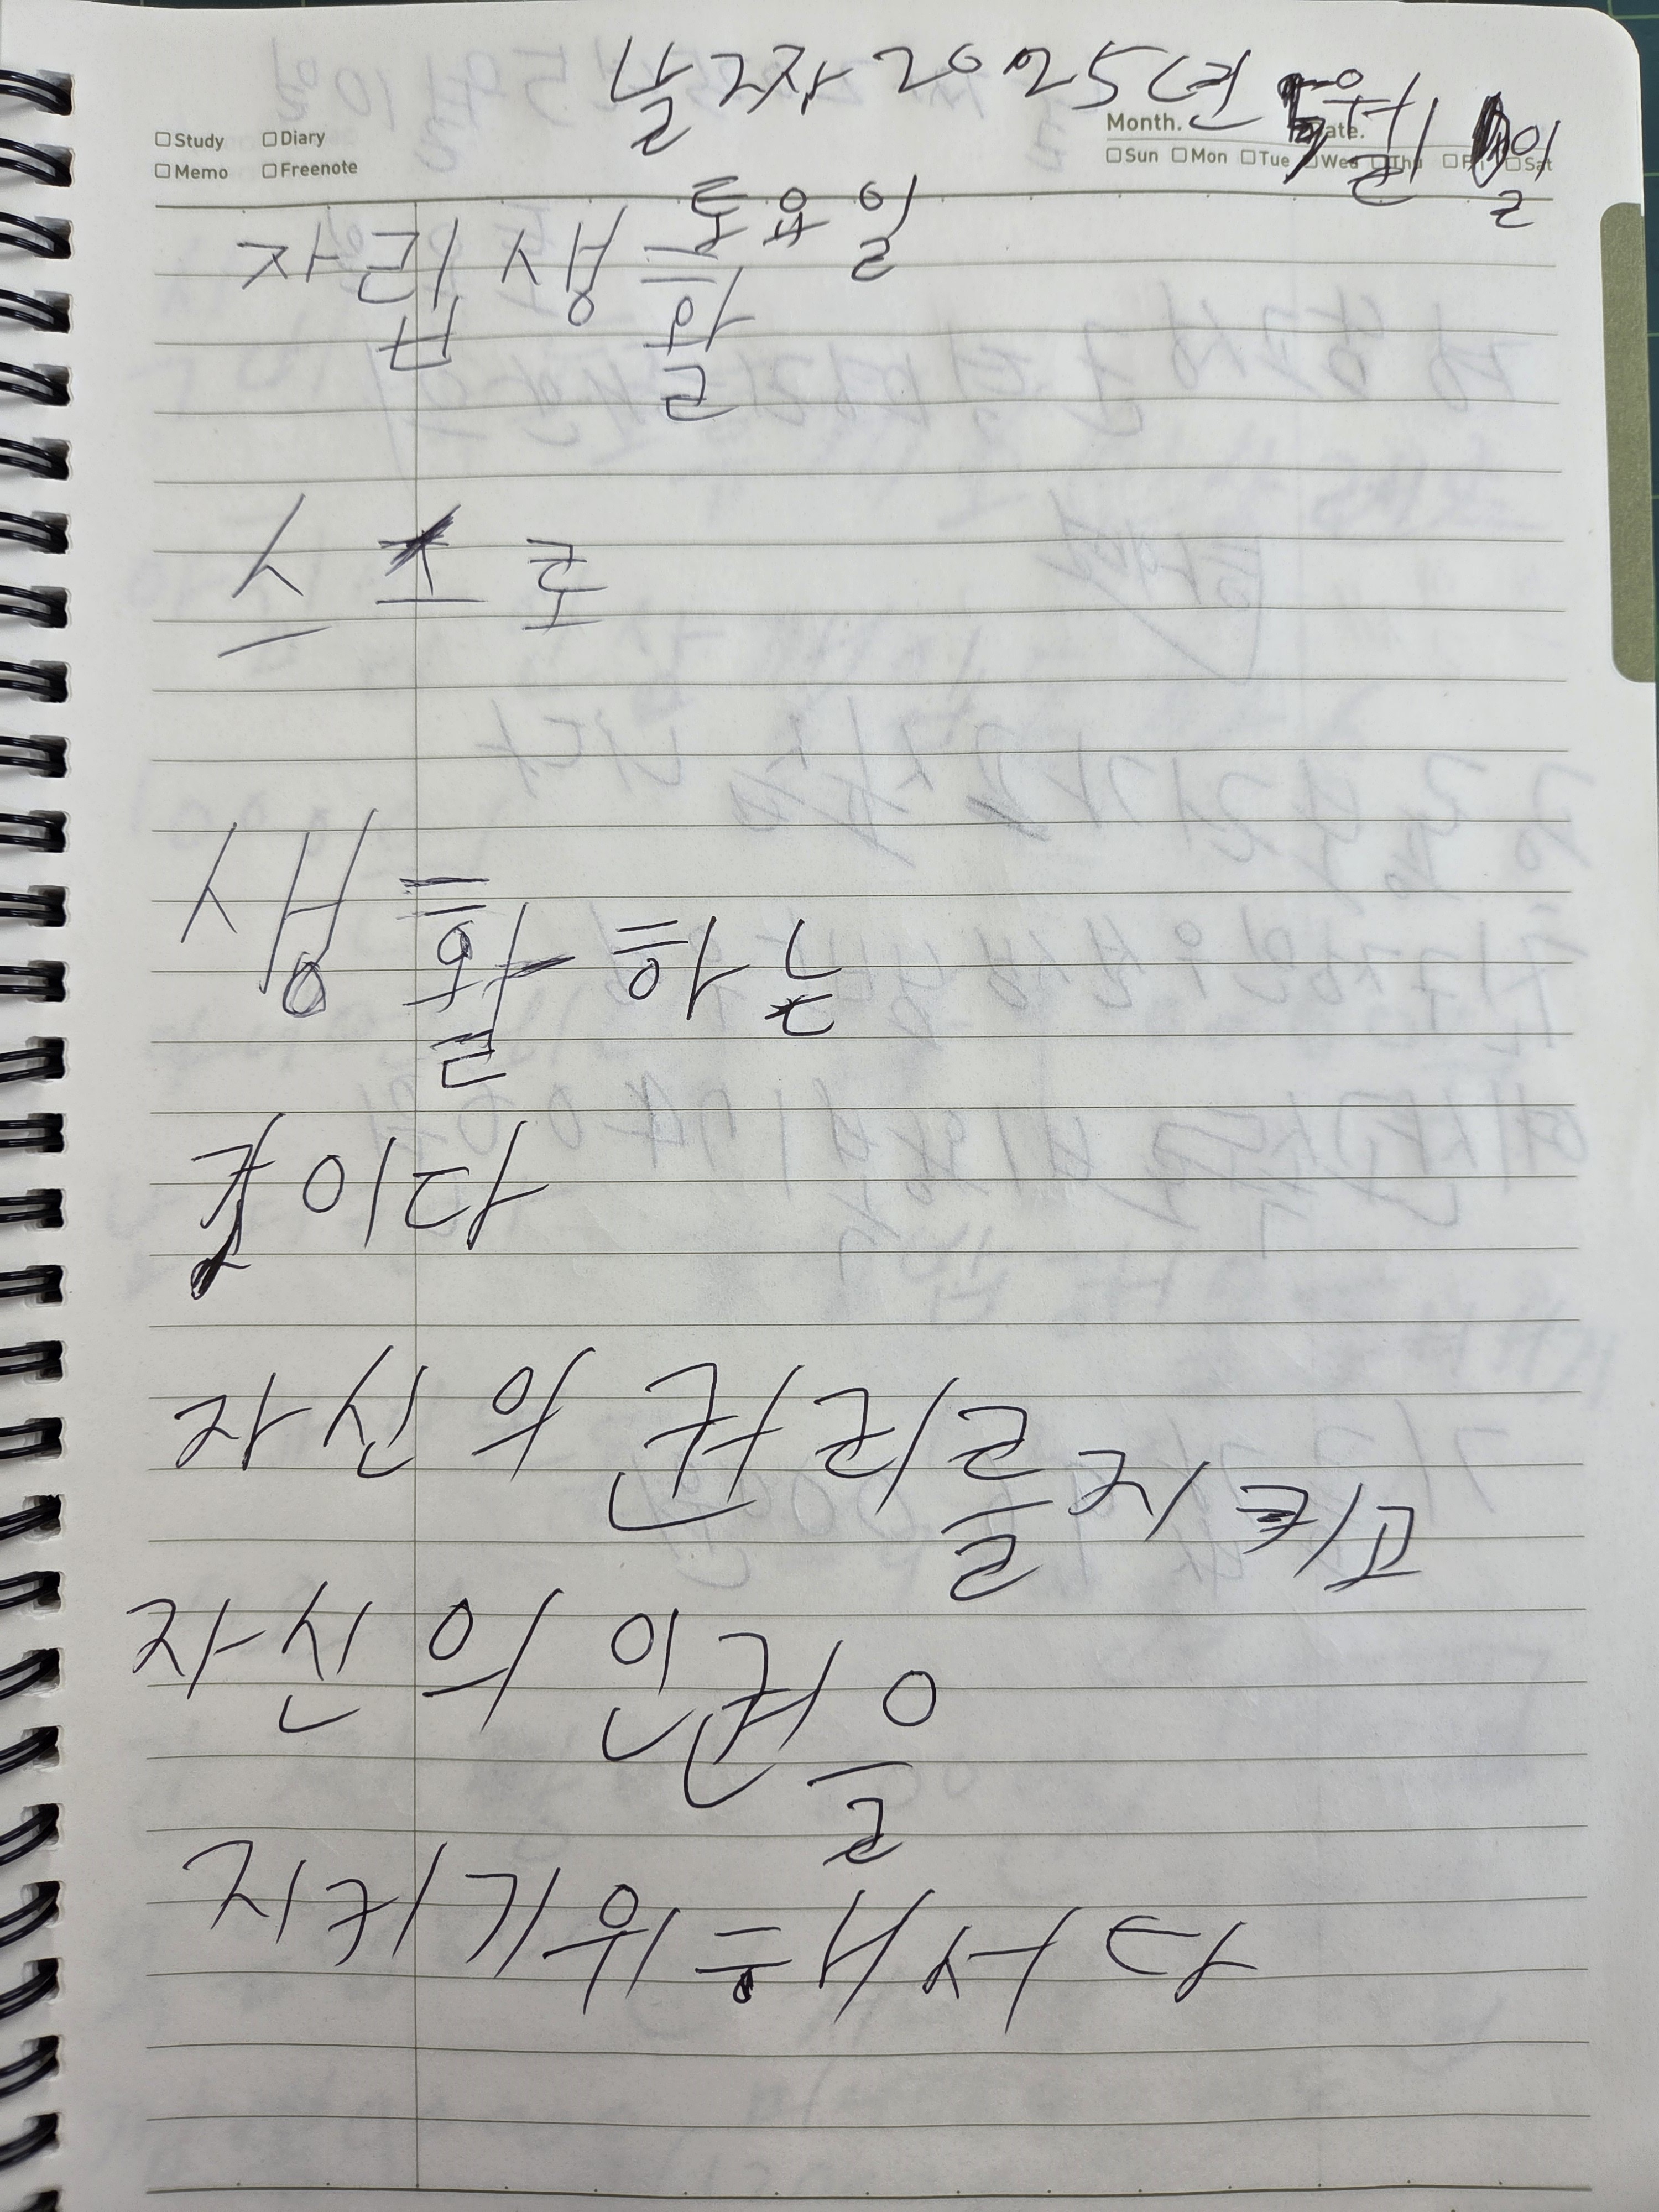 날자 2025년 5월 10일
Month. Date.
□Study □Diary
□Sun □Mon □Tue □Wed □Thu □Fri □Sat
□Memo □Freenote
토요일
자립생활
스스로
생활하는
것이다
자신의 권리를 지키고
자신의 인권을
지키기위해서다